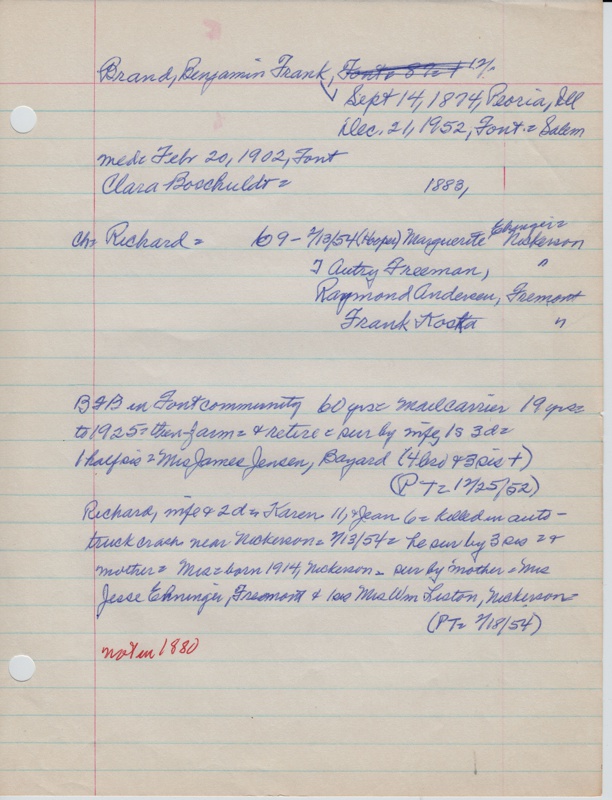 Brand, Benjamin Frank, 12/.
Sept 14, 1874, Peoria, Ill
Dec. 21, 1952, Font. = Salem
med = Febr 20, 1902, Font
Clara Boschuldt = 1883,
ch = Richard = 09 - 7/13/54 (Hooper) Marguerite Ehninger = Nickerson
J Autry Freeman, "
Raymond Andersen, Fremont
Frank Kosta "
BFB in Font community 60 yrs = mail carrier 19 yrs =
to 1925 = then farm = & retire = sur by wife, 1s 3d =
1 half sis = Mrs James Jensen, Bayard (4 bro & 3 sis +)
(PT = 12/25/52)
Richard, wife & 2d = Karen 11, & Jean 6 = killed in auto-
truck crash near Nickerson = 7/13/54 = he sur by 3 sis = &
mother = Mrs = born 1914, Nickerson = sur by mother = Mrs
Jesse Ehninger, Fremont & 1 sis Mrs Wm Liston, Nickerson =
(PT = 7/18/54)
not in 1880